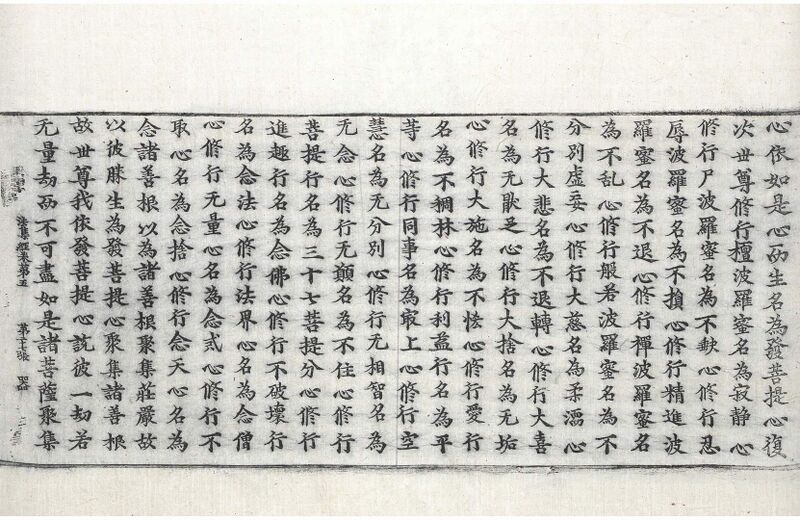 心依如是心而生名為發菩提心復
次世尊修行檀波羅蜜名為寂静心
修行尸波羅蜜名為不缺心修行忍
辱波羅蜜名為不損心修行精進波
羅蜜名為不退心修行禪波羅蜜名
為不乱心修行般若波羅蜜名為不
分别虛妄心修行大慈名為柔濡心
修行大悲名為不退轉心修行大喜
名為无猒乏心修行大捨名為无垢
心修行大施名為不恡心修行愛行
名為不稠林心修行利益行名為平
等心修行同事名為㝡上心修行空
慧名為无分別心修行无相智名為
无念心修行无願名為不住心修行
菩提行名為三十七菩提分心修行
進趣行名為念佛心修行不破壞行
名為念法心修行法界心名為念僧
心修行无量心名為念戒心修行不
取心名為念捨心修行念天心名為
念諸善根以為諸善根聚集莊嚴故
以彼勝生為發菩提心聚集諸善根
故世尊我依發菩提心說彼一劫若
第五 第二十七張
无量劫而不可盡如是諸菩薩聚集